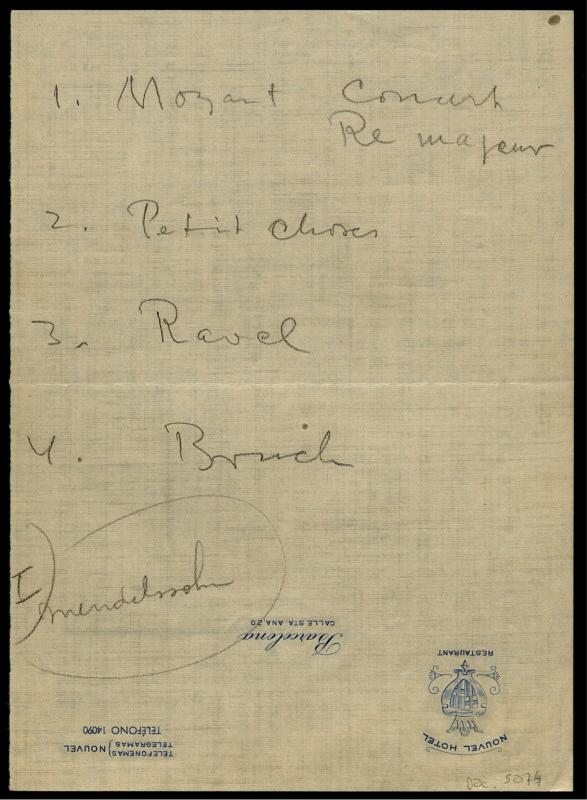 1. Mozart Concert
Re majeur
2. Petit choses
3. Ravel
4. Bruch
I) Mendelssohn
Barcelona
CALLE STA. ANA, 20
RESTAURANT
NOUVEL HOTEL
TELEFONEMAS
TELEGRAMAS } NOUVEL
TELÉFONO 14090
Doc. 5074